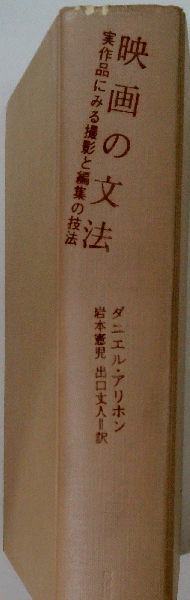 映画の文法
実作品にみる撮影と編集の技法
ダニエル・アリホン
岩本憲児 出口丈人＝訳